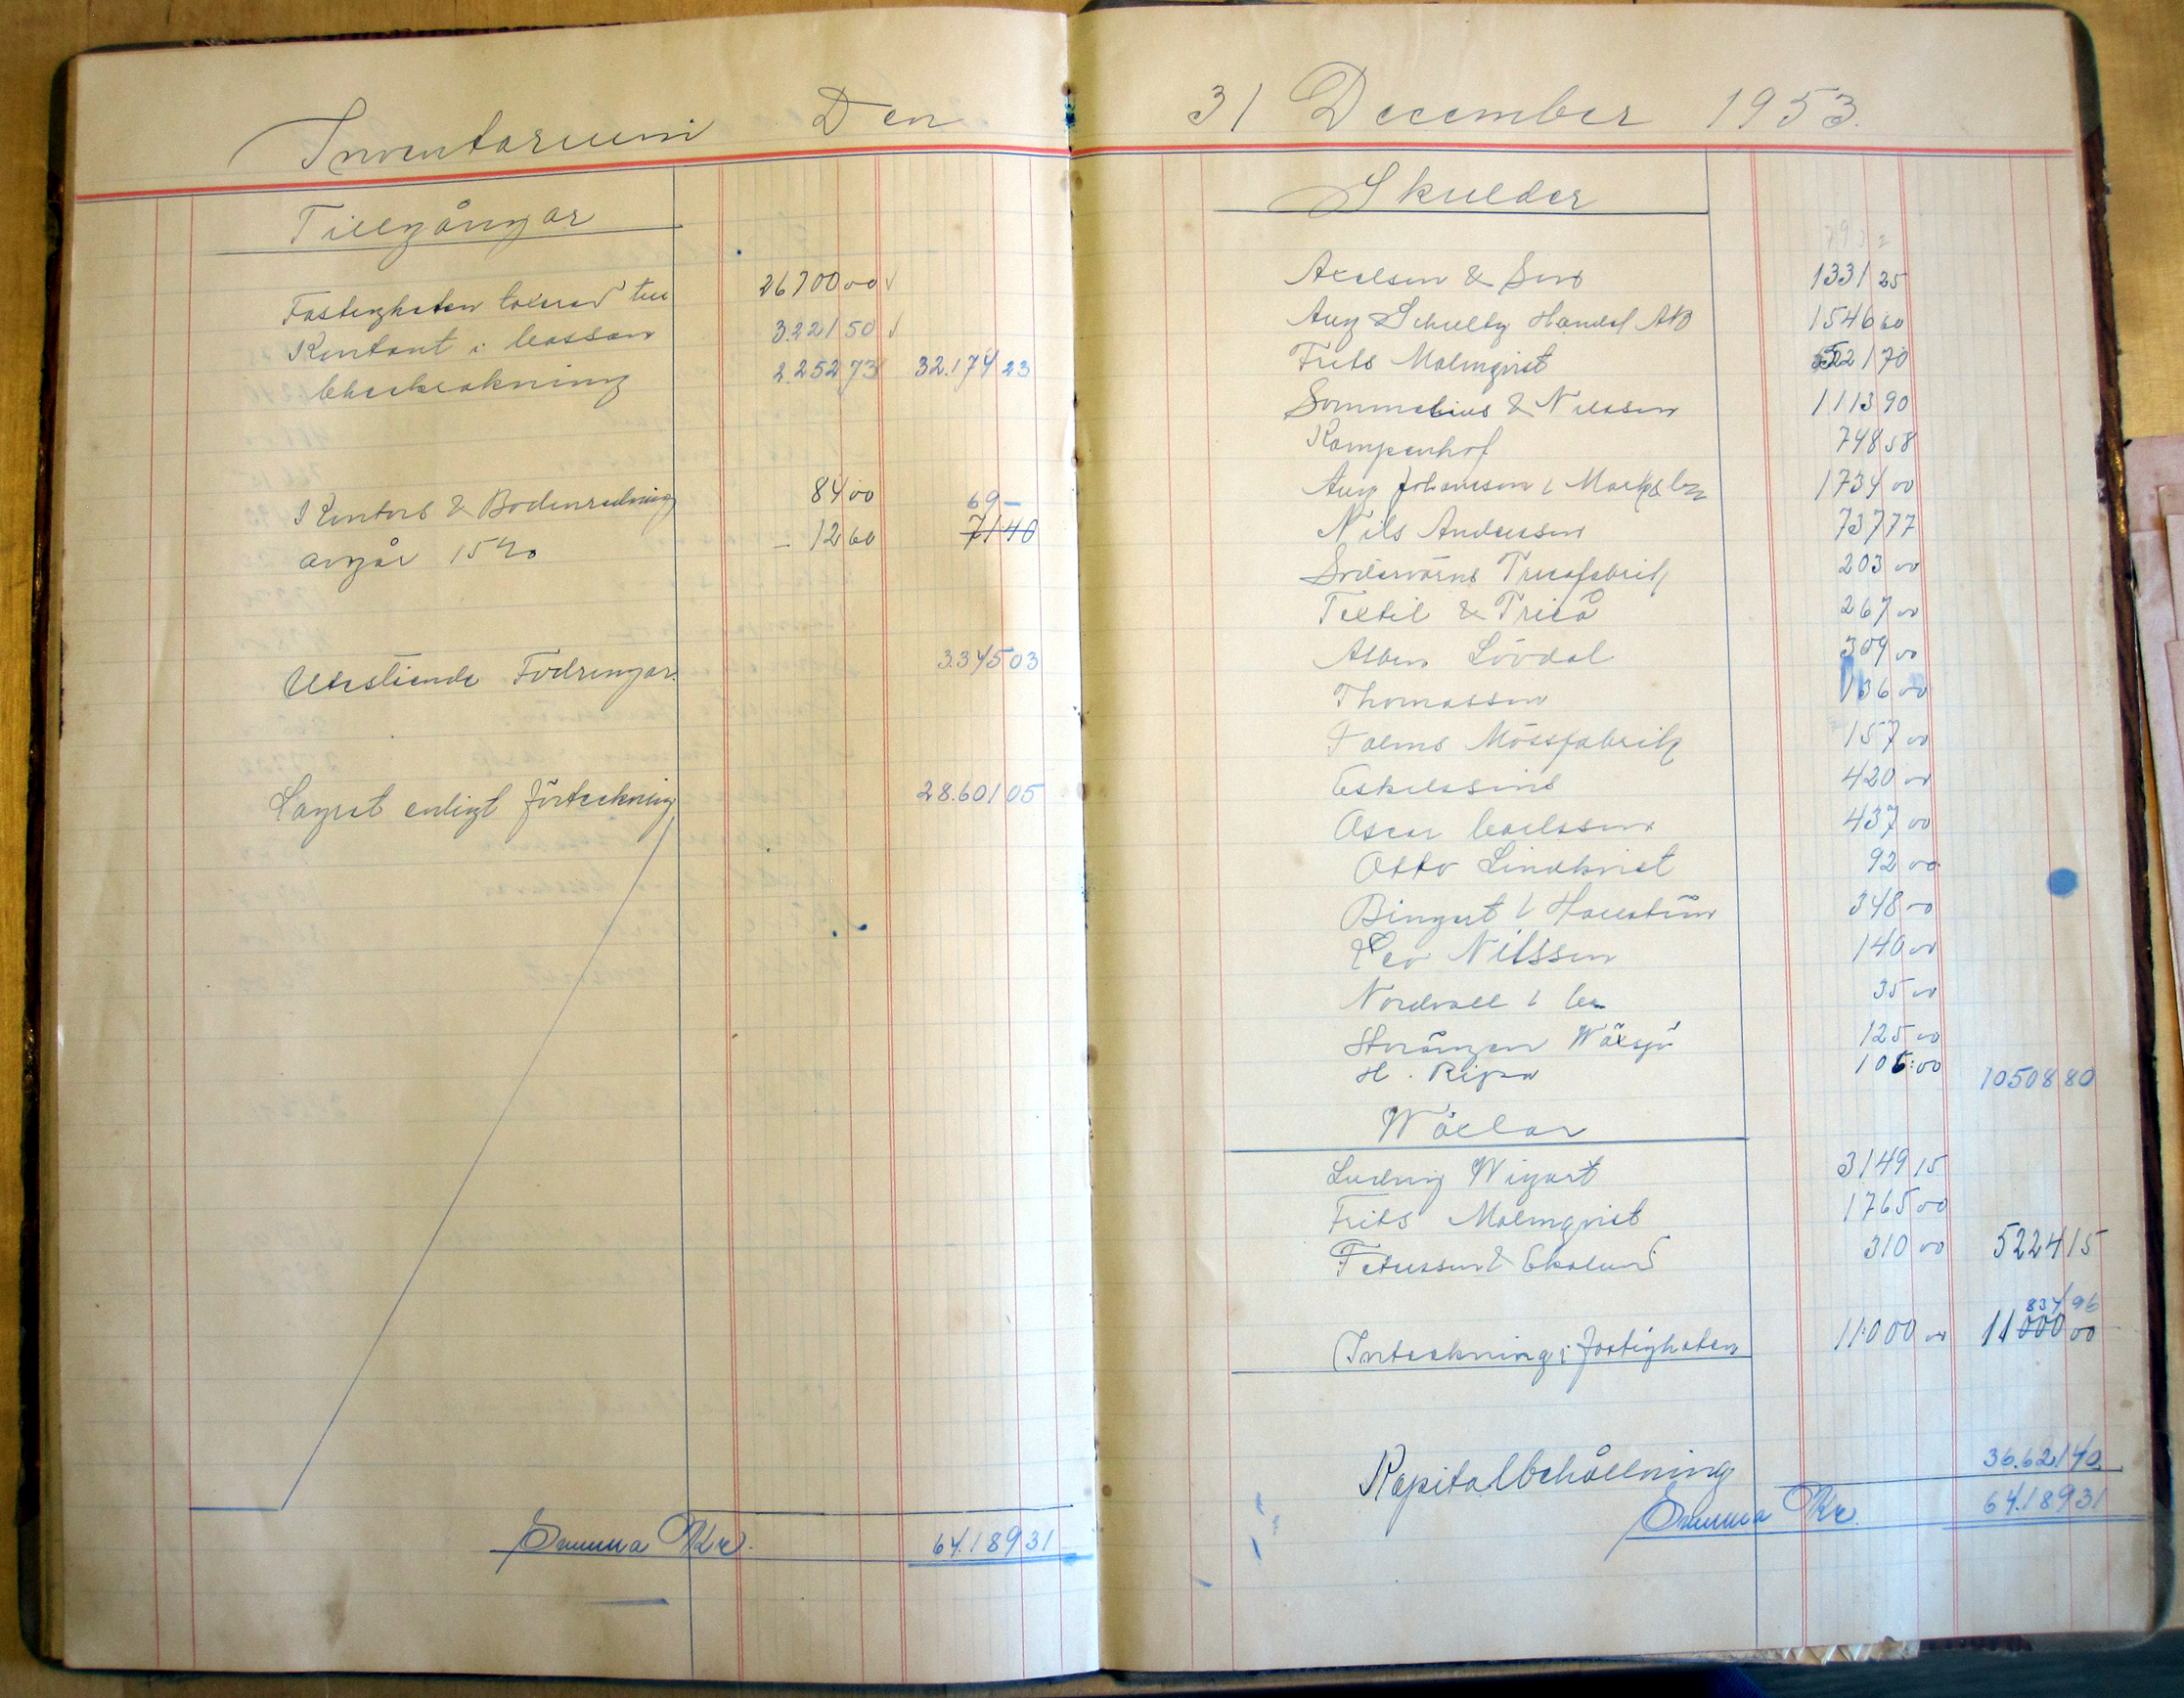 Inventarium Den
Tillgångar
Fastigheten taxerad till 26700 00
Kontant i Cassan 3.221 50
Checkräkning 2.252 73 32.174 23
Kontors & Bodinredning 84 00 69 –
avgår 15% – 12 60 71 40
Utestående Fodringar. 3.345 03
Lagret enligt förteckning 28.601 05
Summa Kr. 64.189 31
31 December 1953.
Skulder
Axelson & Son 1331 25
Aug Schultz Handel AB 1546 60
Frits Malmqvist 522 70
Sommelius & Nilsson 1113 90
Kampenhof 748 58
Aug Johansson & 1734 00
Nils Andersson 737 77
Södervärns Tricofabrik 203 00
Textil & Tricå 267 00
Albin Lövdal 309 00
Thomasson 136 00
Mössfabrik 157 00
Eskelssons 420 00
Oscar Carlsson 437 00
Otto Lindkvist 92 00
Bingert & Hallström 348 00
Leo Nilsson 140 00
Nordvall & Co 35 00
Strången Wäxsjö 125 00
H. Ripa 105:00 10508 80
Wäxlar
Ludvig Wigart 3149 15
Frits Malmqvist 1765 00
& Ekelund 310 00 5224 15
834 96
Inteckning i fastigheten 11000 00 11000 00
Kapitalbehållning 36.621 40
Summa Kr. 64.189 31